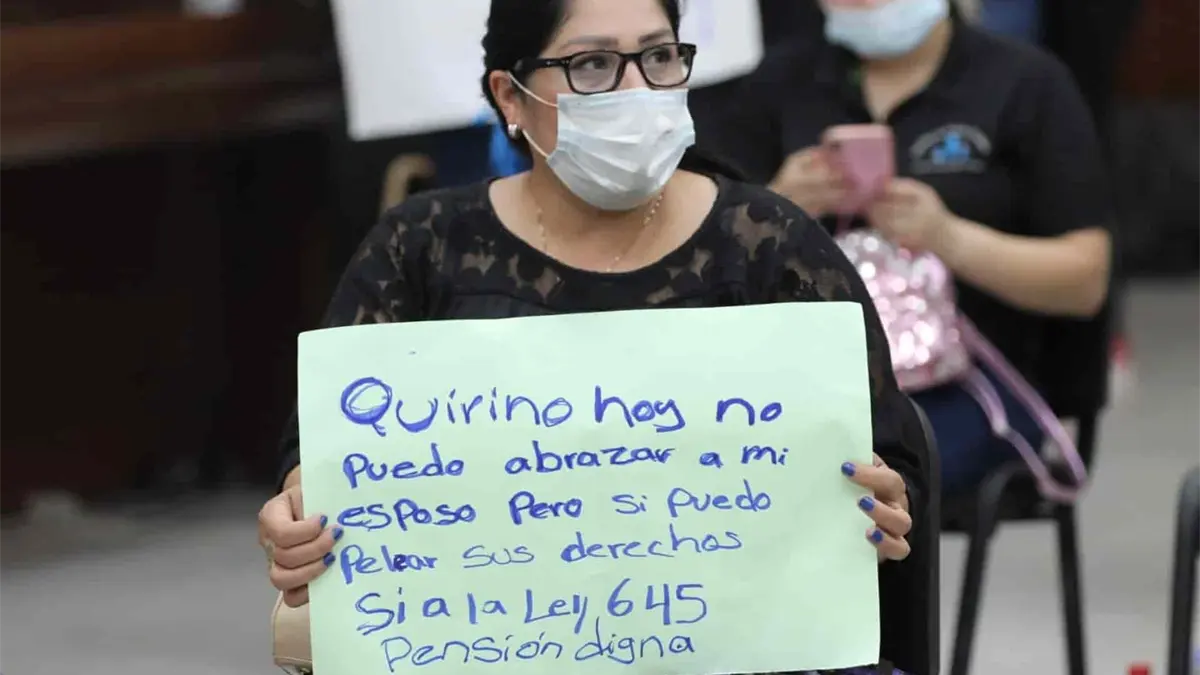 Quirino hoy no
Puedo abrazar a mi
esposo Pero si puedo
Pelear sus derechos
Si a la Ley 645
Pensión digna